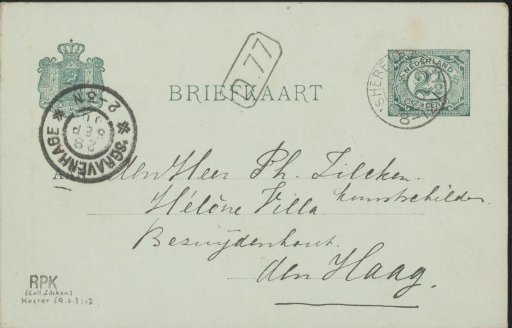 D.77
BRIEFKAART
NEDERLAND
2½
'SGRAVENHAGE
2-3N
28
SEP
Aan den Heer Ph. Zilcken.
Kunstschilder
Hélène Villa
Bezuijdenhout.
den Haag.
RPK
(Coll. Zilcken)
Koster (A.L.): 12